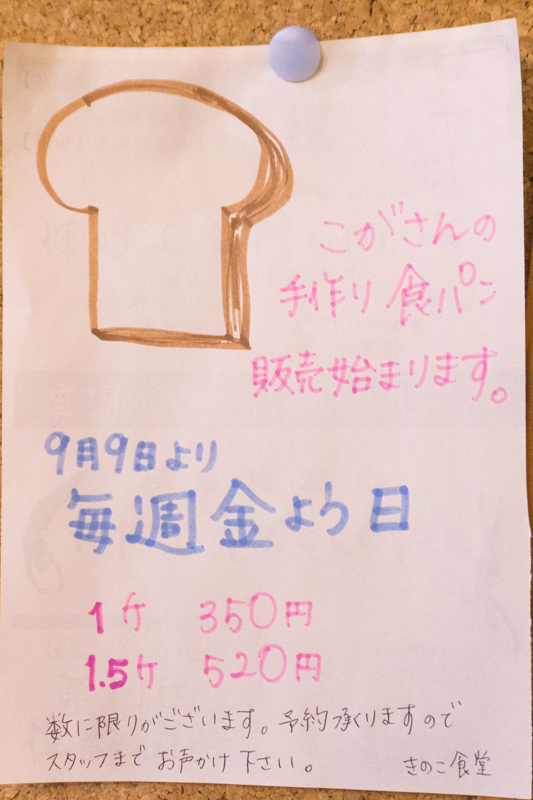 こがさんの
手作り食パン
販売始まります。
9月9日より
毎週金よう日
1ケ 350円
1.5ケ 520円
数に限りがございます。予約承りますので
スタッフまでお声かけ下さい。 きのこ食堂